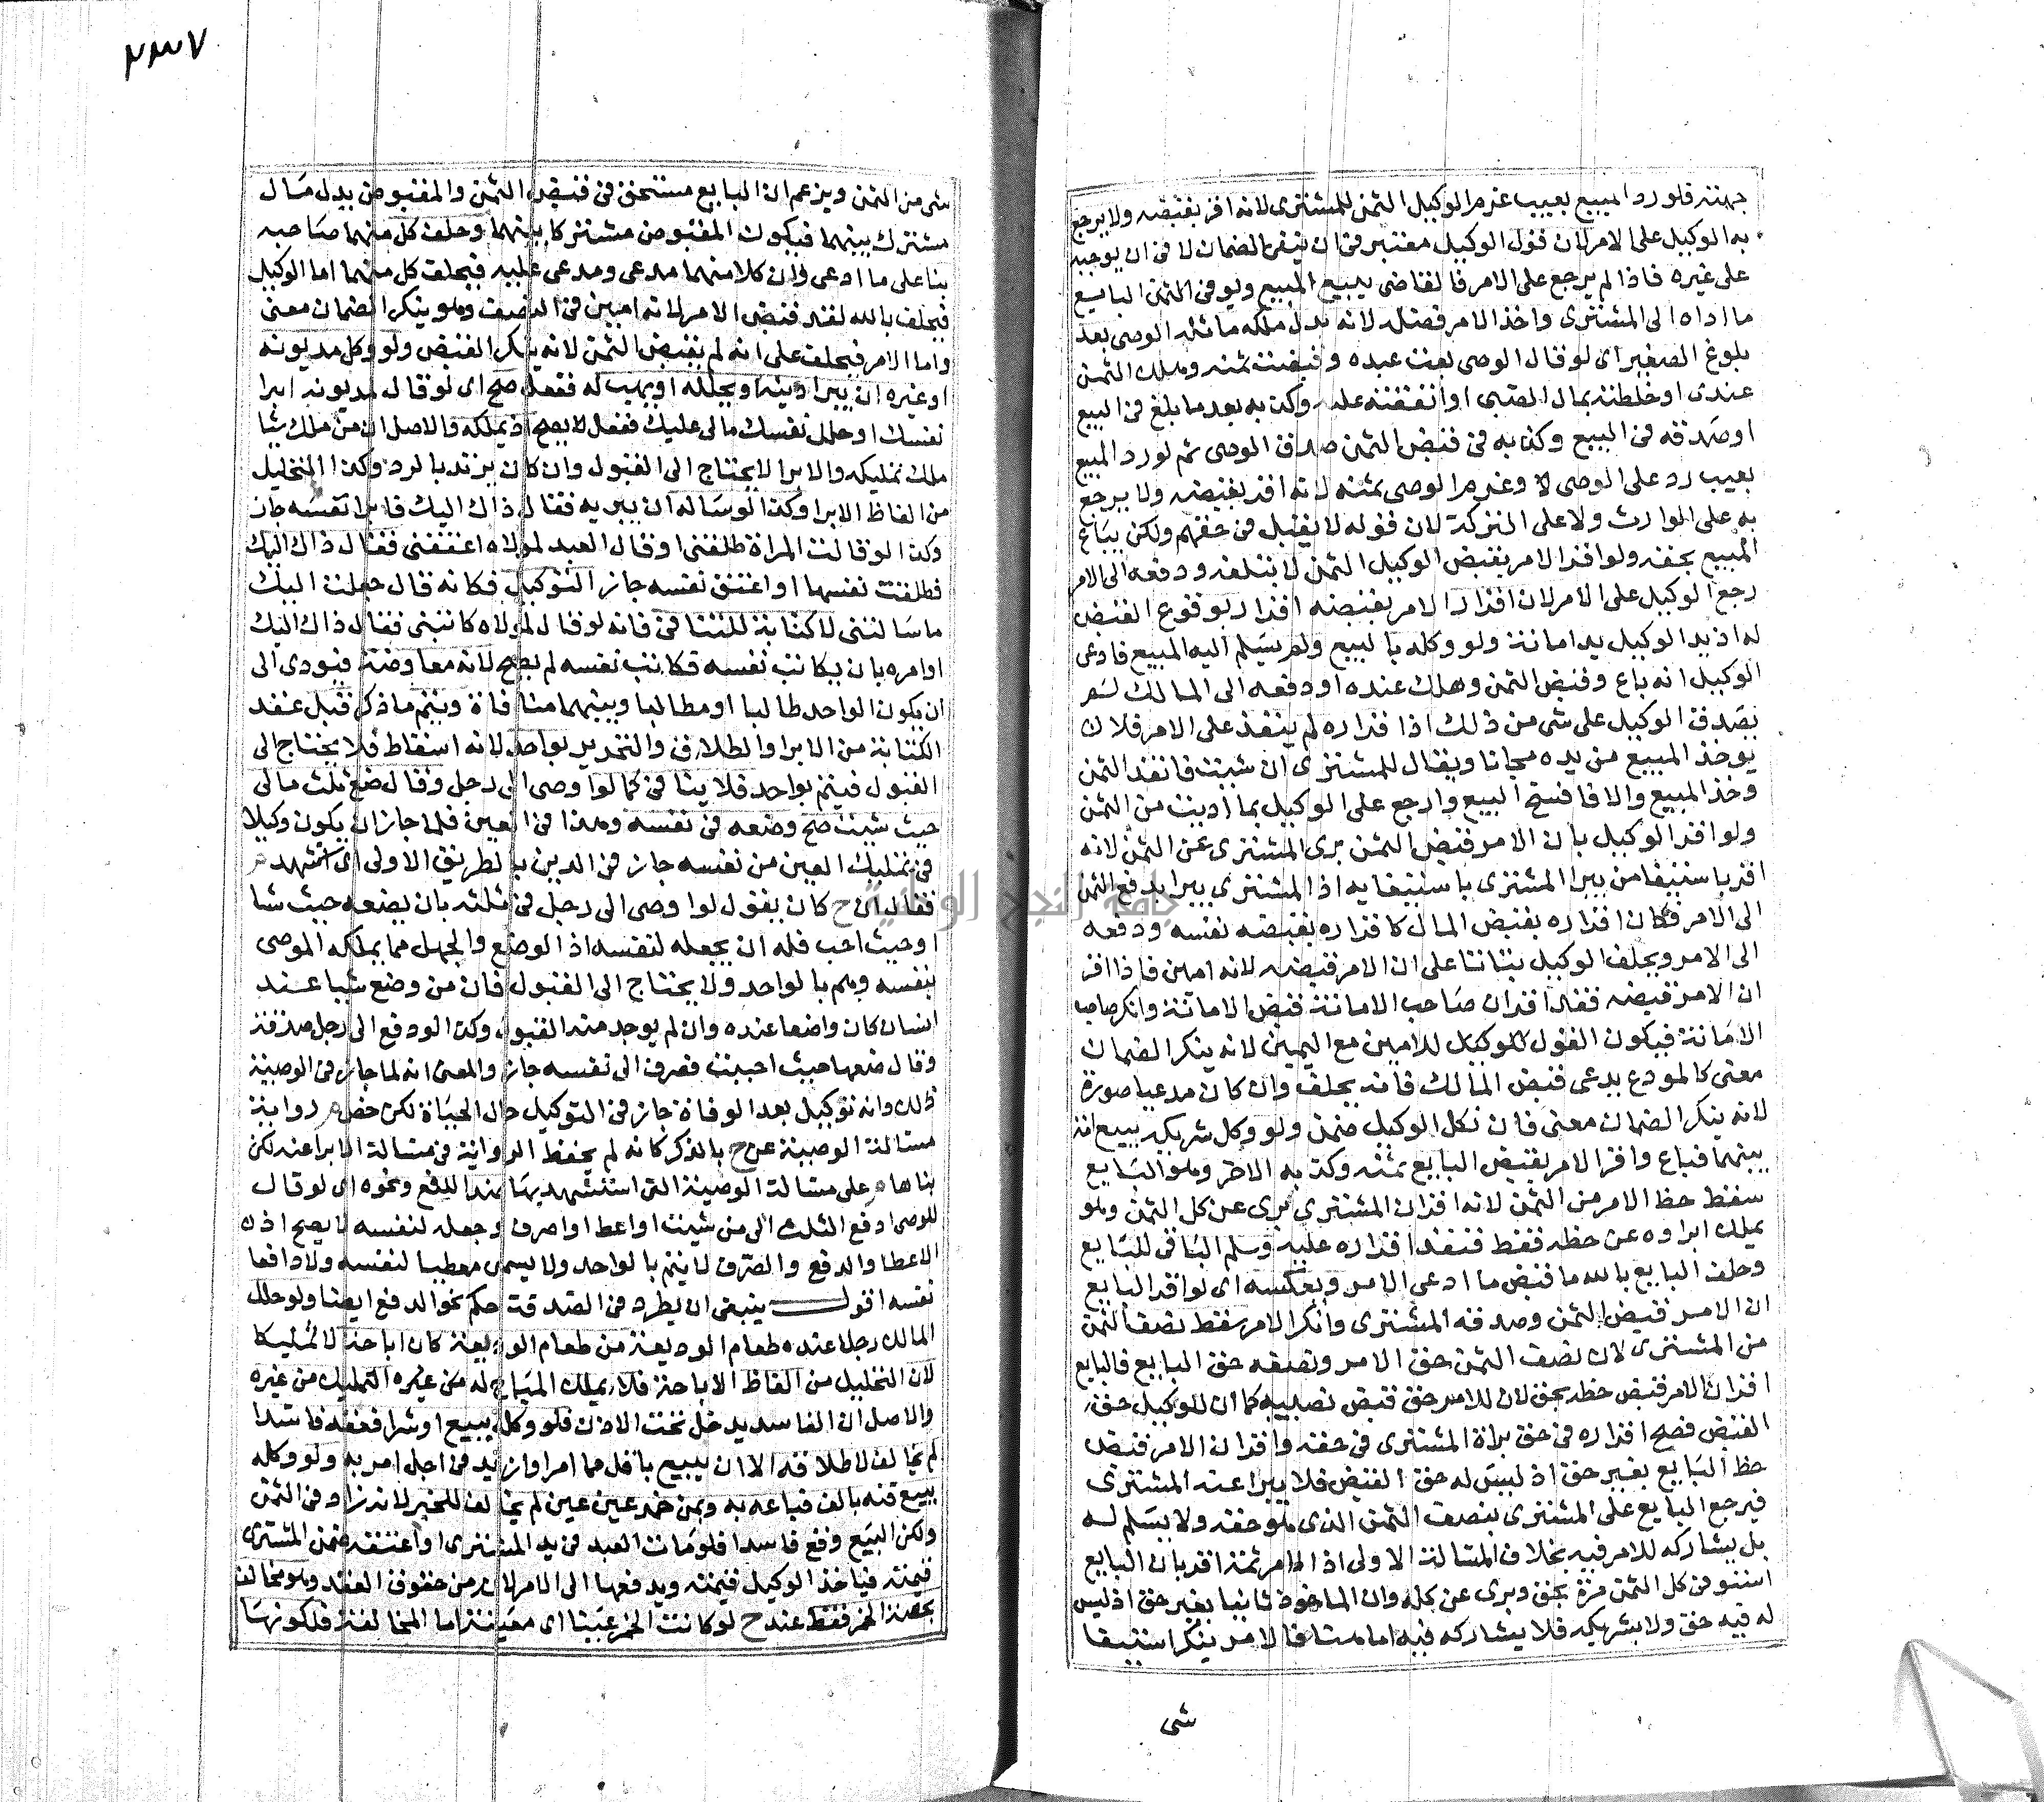 جهته فلو رد المبيع بعيب غرم الوكيل الثمن للمشترى لانه اقر بقبضه ولا يرجع
به الوكيل على الامر لان قول الوكيل معتبر فى ان ينفى الضمان لا فى ان يوجبه
على غيره فاذا لم يرجع على الامر فالقاضى يبيع المبيع ويوفى الثمن البايع
ما اداه الى المشترى واخذ الامر فضله لانه بدل ملكه ما مثله الوصى بعد
بلوغ الصغير اى لو قال الوصى بعت عبده وقبضت ثمنه وهلك الثمن
عندى او خلطته بمال الصبى او انفقته عليه وكذبه بعد ما بلغ فى البيع
او صدقه فى البيع وكذبه فى قبض الثمن صدق الوصى ثم لو رد المبيع
بعيب رد على الوصى لا وغرم الوصى ثمنه لانه اقر بقبضه ولا يرجع
به على الوارث ولا على التركة لان قوله لا يقبل فى حقهم ولكن يباع
المبيع بحقه ولو اقر الامر بقبض الوكيل الثمن لا بتلفه ودفعه الى الامر
رجع الوكيل على الامر لان اقرار الامر بقبضه اقرار بوقوع القبض
له اذ يد الوكيل يد امانة ولو وكله بالبيع ولم يسلم اليه المبيع فادعى
الوكيل انه باع وقبض الثمن وهلك عنده او دفعه الى المالك لم
يصدق الوكيل على شى من ذلك اذ اقراره لم ينفذ على الامر فلا
يوخذ المبيع من يده مجانا ويقال للمشترى ان شيت فانقد الثمن
وخذ المبيع والا فافسخ البيع وارجع على الوكيل بما اديت من الثمن
ولو اقر الوكيل بان الامر قبض الثمن برى المشترى عن الثمن لانه
اقر باستيفا من يبرا المشترى باستيفايه اذ المشترى يبرا بدفع الثمن
الى الامر فكان اقراره بقبض المال كاقراره بقبضه نفسه ودفعه
الى الامر ويحلف الوكيل بتاتا على ان الامر قبضه لانه امين فاذا اقر
ان الامر قبضه فقد اقر ان صاحب الامانة قبض الامانة وانكر صاحب
الامانة فيكون القول للوكيل للامين مع اليمين لانه ينكر الضمان
معنى كالمودع يدعى قبض المالك فانه يحلف وان كان مدعيا صورة
لانه ينكر الضمان معنى فان نكل الوكيل ضمن ولو وكل شريكه ببيع
بينهما فباع واقر الامر بقبض البايع ثمنه وكذبه الاخر وهو البايع
سقط حظ الامر من الثمن لانه اقر ان المشترى برى عن كل الثمن وهو
يملك ابراه عن حظه فقط فنفذ اقراره عليه وسلم الباقى للبايع
وحلف البايع بالله ما قبض ما ادعى الامر وبعكسه اى لو اقر البايع
ان الامر قبض الثمن وصدقه المشترى وانكر الامر سقط نصف الثمن
من المشترى لان نصف الثمن حق الامر ونصفه حق البايع فالبايع
اقر ان الامر قبض حظه بحق لان للامر حق قبض نصيبه كما ان للوكيل حق
القبض فصح اقراره فى حق براة المشترى فى حقه واقر ان الامر قبض
حظ البايع بغير حق اذ ليس له حق القبض فلا يبرا عنه المشترى
فيرجع البايع على المشترى بنصف الثمن الذى هو حقه ولا يسلم له
بل يشاركه للامر فيه بخلاف المسالة الاولى اذ الامر ثمنه اقر بان البايع
استوفى كل الثمن مرة بحق وبرى عن كله وان الماخوذ ثانيا بغير حق اذ ليس
له فيه حق ولا بشريكه فلا يشاركه فيه اما هنا فالامر ينكر استيفا
شى
٢٣٧
شى من الثمن ويزعم ان البايع مستحق فى قبض الثمن والمقبوض بدل مال
مشترك بينهما فيكون المقبوض مشتركا بينهما وحلف كل منهما صاحبه
بنا على ما ادعى وان كلا منهما مدعى ومدعى عليه فيحلف كل منهما اما الوكيل
فيحلف بالله لقد قبض الامر لانه امين فى النصف وهو ينكر الضمان معنى
واما الامر فيحلف على انه لم يقبض الثمن لانه ينكر القبض ولو وكل مديونه
او غيره ان يبرا دينه او يحلله او يهب له ففعل صح اى لو قال لمديونه ابرا
نفسك او حلل نفسك مالى عليك ففعل لا يصح اذ يملكه والاصل ان من ملك شيا
ملك تمليكه والابرا لا يحتاج الى القبول وان كان يرتد بالرد وكذا التحليل
من الفاظ الابرا وكذا لو ساله ان يبريه فقال ذاك اليك فابرا نفسه جاز
وكذا لو قالت المراة طلقنى او قال العبد لمولاه اعتقنى فقال ذاك اليك
فطلقت نفسها او اعتق نفسه جاز التوكيل فكانه قال جعلت اليك
ما سالتنى لا كتابة للتنافى فانه لو قال لمولاه كاتبنى فقال ذاك اليك
او امره بان يكاتب نفسه فكاتب نفسه لم يصح لانه معاوضة فيودى الى
ان يكون الواحد طالبا او مطالبا وبينهما منافاة ويتم ما ذكر قبل عقد
الكتابة من الابرا والطلاق والتحرير بواحد لانه اسقاط فلا يحتاج الى
القبول فيتم بواحد فلا ينافى كما لو اوصى الى رجل وقال ضع ثلث مالى
حيث شيت صح وضعه فى نفسه وهذا فى العين فلما جاز ان يكون وكيلا
فى تمليك العين من نفسه جاز فى الدين بالطريق الاولى اى استشهد م
فقال ان ح كان يقول لو اوصى الى رجل فى ثلثه بان يضعه حيث شا
او حيث احب فله ان يجعله لنفسه اذ الوضع والجهل مما يملكه الموصى
بنفسه وهم بالواحد ولا يحتاج الى القبول فان من وضع شيا عند
انسان كان واضعا عنده وان لم يوجد منه القبول وكذا لو دفع الى رجل صدقة
وقال ضعها حيث احببت فصرف الى نفسه جاز والمعنى انه لما جاز فى الوصية
ذلك وانه توكيل بعد الوفاة جاز فى التوكيل حال الحياة لكن خص م رواية
مسالة الوصية عن ح بالذكر كانه لم يحفظ الرواية فى مسالة الابرا عنه لكن
بناها م على مسالة الوصية التى استشهد بها هذا للدفع ونحوه اى لو قال
للوصى ادفع الثلث الى من شيت او اعط او اصرف وجعله لنفسه لا يصح اذ
الاعطا والدفع والصرف لا يتم بالواحد ولا يسمى معطيا لنفسه ولا دافعا
نفسه اقول ينبغى ان يطرد فى الصدقة حكم نحو الدفع ايضا ولو حلل
المالك رجلا عنده طعام الوديعة من طعام الوديعة كان اباحة لا تمليكا
لان التحليل من الفاظ الاباحة فلا يملك المباح له من غيره التمليك من غيره
والاصل ان الفاسد يدخل تحت الاذن فلو وكل ببيع او شرا فعقد فاسدا
لم يخالف لاطلاقه الا ان يبيع باقل مما امر او ازيد فى اجل امر به ولو وكله
ببيع قنه بالف فباعه به وبمن خمر عين عين لم يخالف للخير لانه زاد فى الثمن
ولكن البيع وقع فاسدا فلو مات العبد فى يد المشترى او اعتقه ضمن المشترى
قيمته فياخذ الوكيل قيمته ويدفعها الى الامر لانه من حقوق العقد وهو مخالف
بحصة الخمر فقط عند ح لو كانت الخمر عينا اى معينة اما المخالفة فلكونها
جامعة النجاح الوطنية